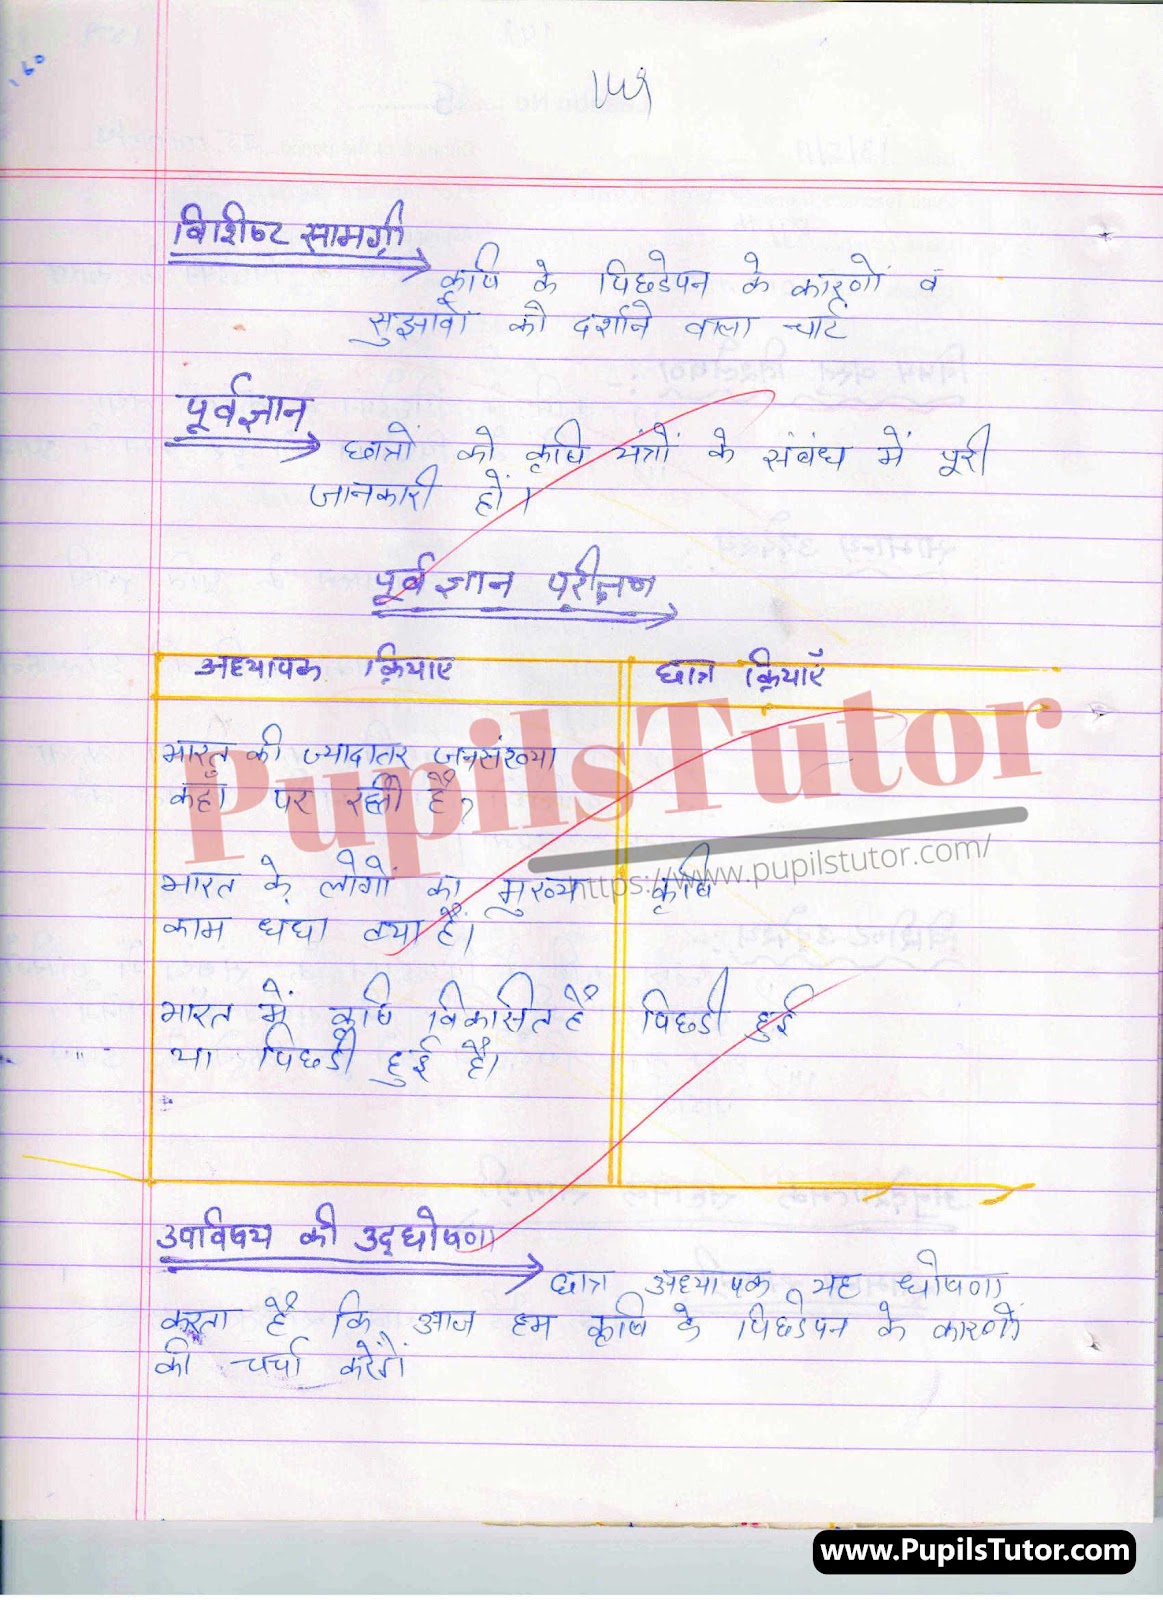 विशिष्ट सामग्री
कृषि के पिछडेपन के कारणों व
सुझावों को दर्शाने वाला चार्ट
पूर्वज्ञान
छात्रों को कृषि यंत्रों के संबंध में पूरी
जानकारी हों।
पूर्वज्ञान परीक्षण
अध्यापक क्रियाए छात्र क्रियाएँ
भारत की ज्यादातर जनसंख्या
कहां पर रहती है?
भारत के लोगों का मुख्य कृषि
काम धंधा क्या हैं।
भारत में कृषि विकसित है पिछडी हुई
या पिछडी हुई है।
उपविषय की उद्घोषणा
छात्र अध्यापक यह घोषणा
करता है कि आज हम कृषि के पिछडेपन के कारणों
की चर्चा करेगें
PupilsTutor
https://www.pupilstutor.com/
www.PupilsTutor.com